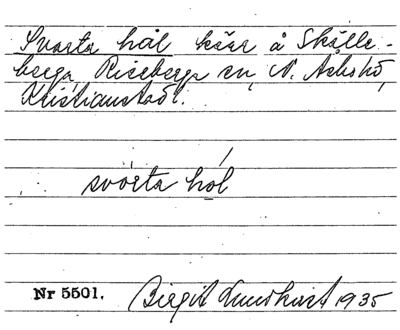 Svarta hål kärr å Skälle-
berga, Riseberga sn, N. Åsbo hd,
Kristianstads l.
svɑrta hól
Nr 5501. Birgit Lundkvist 1935